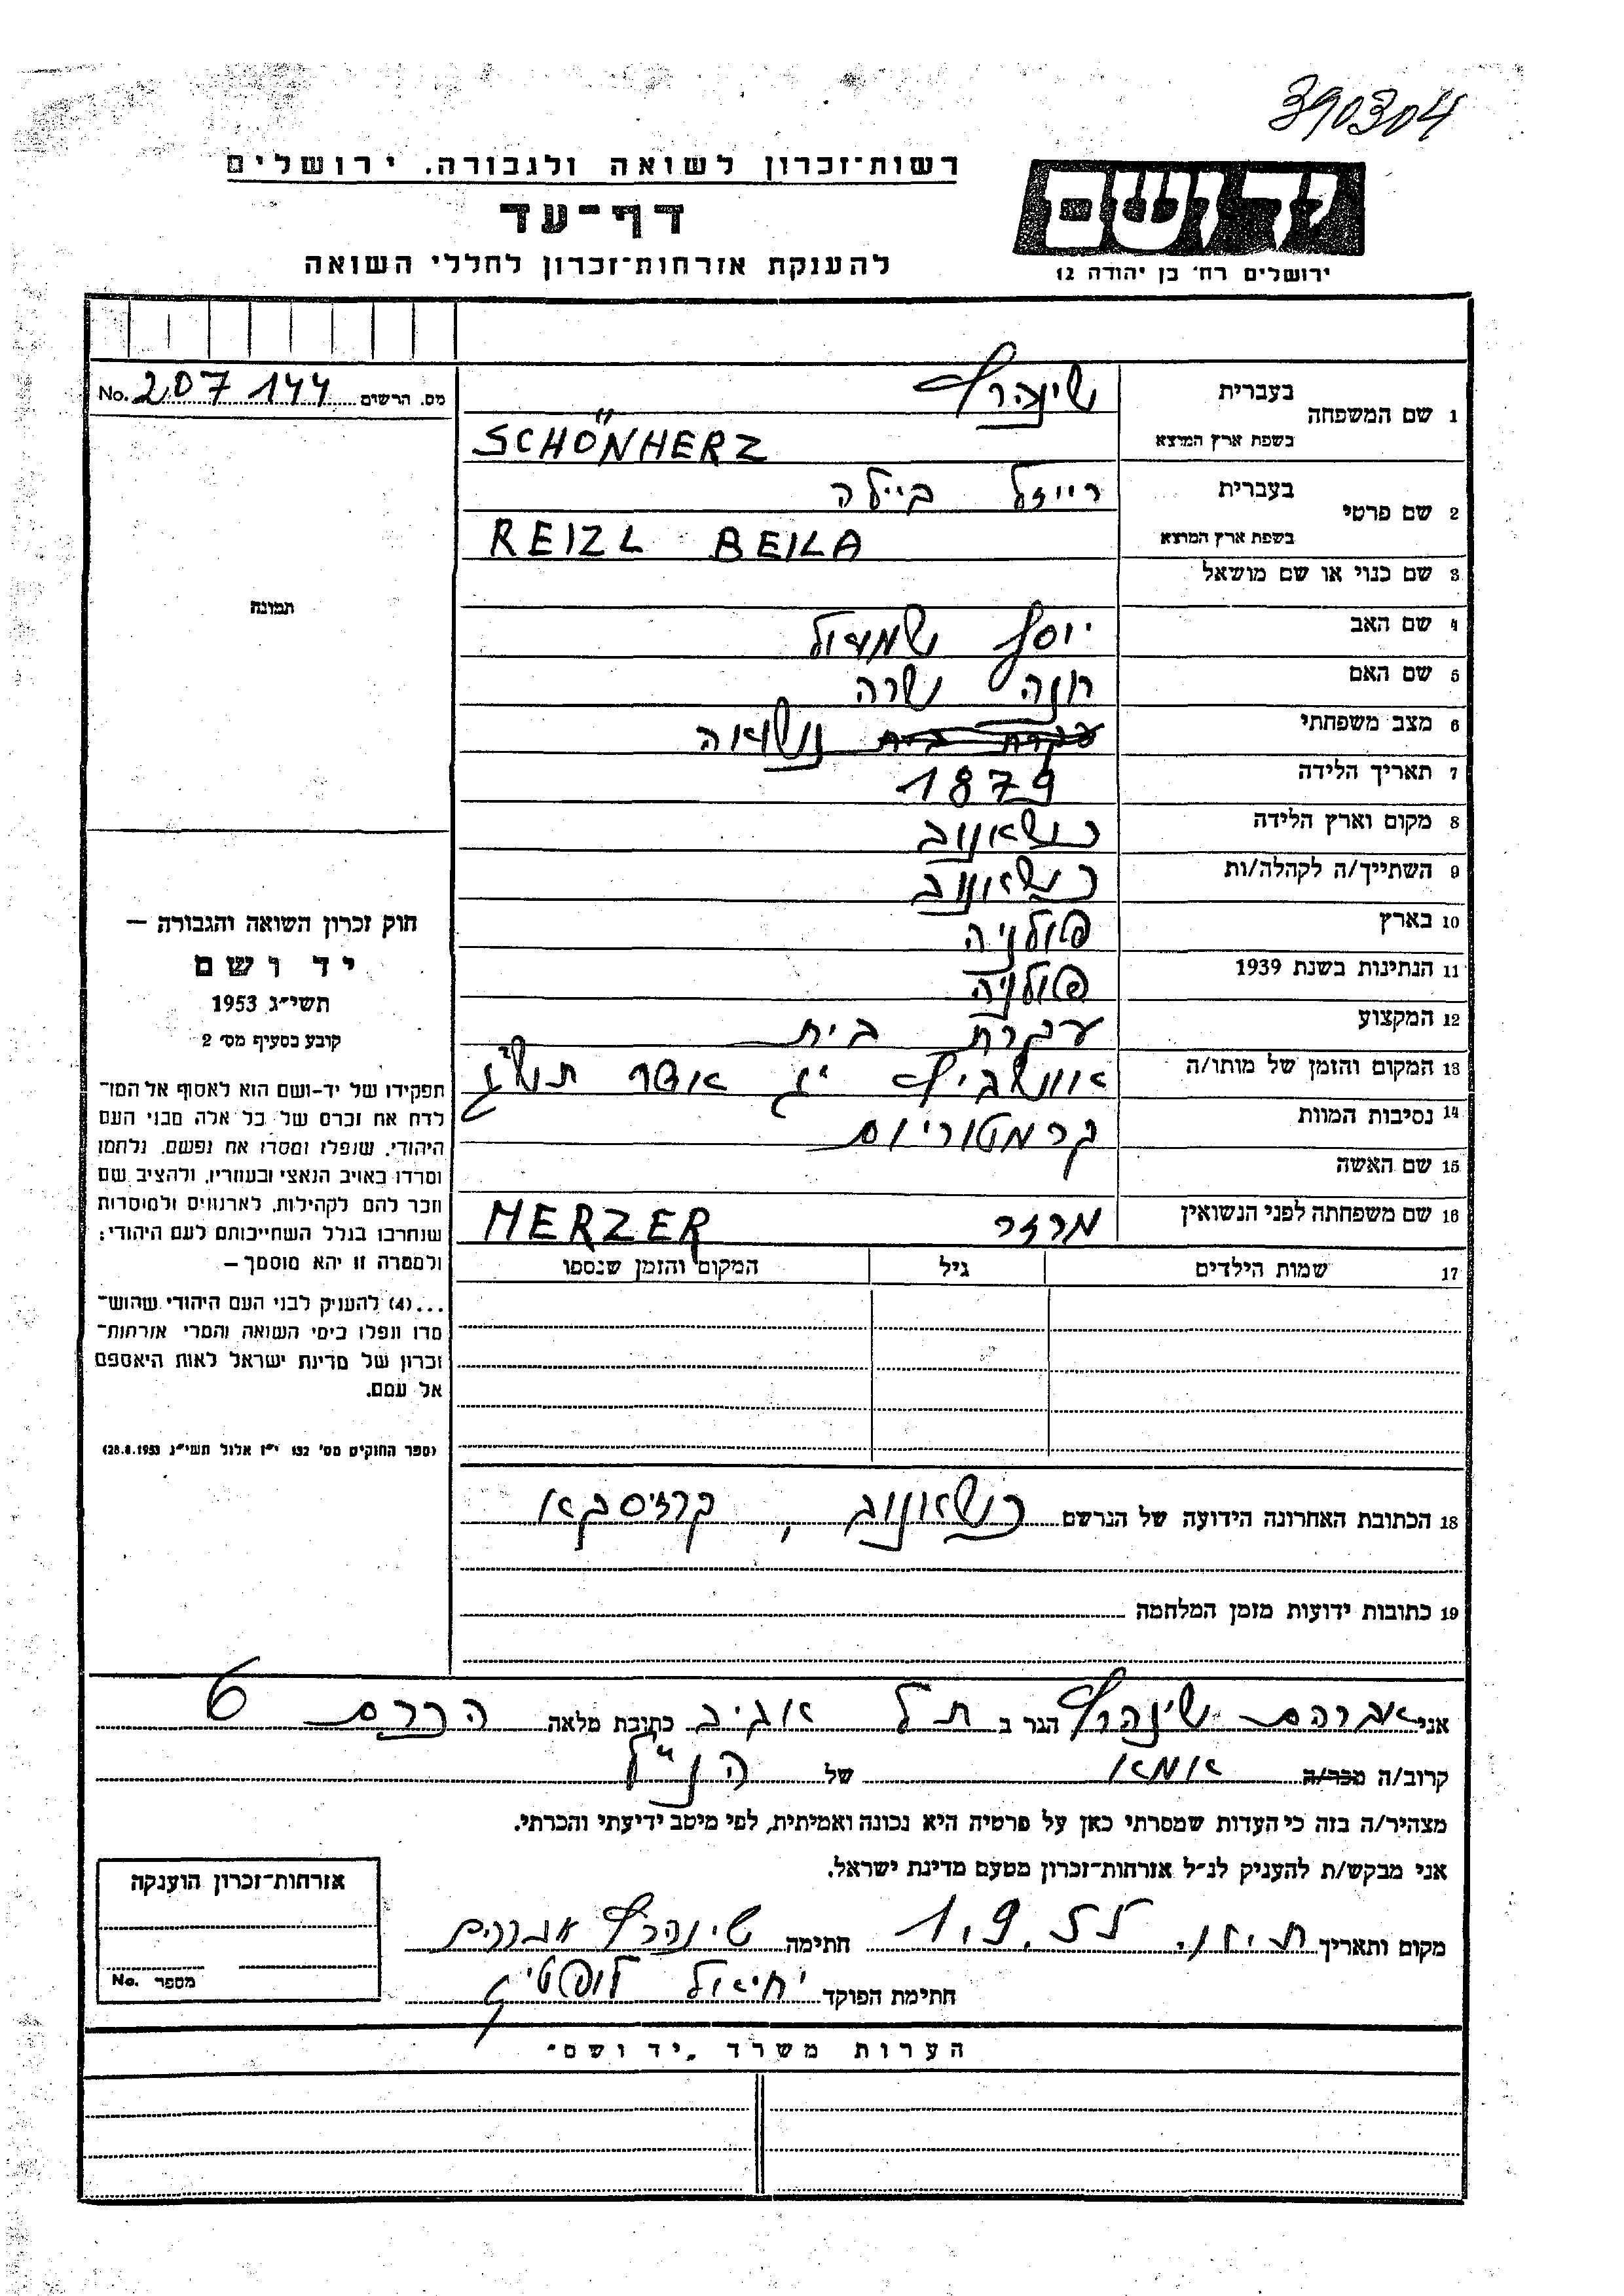 390304
רשות־זכרון לשואה ולגבורה. ירושלים
יד ושם
דף־עד
ירושלים רח׳ בן יהודה 12
להענקת אזרחות־זכרון לחללי השואה
מס. הרשים No. 207144
1 שם המשפחה בעברית שינהרץ
בשפת ארץ המוצא SCHÖNHERZ
2 שם פרטי בעברית רייזל ביילה
בשפת ארץ המוצא REIZL BEILA
3 שם כנוי או שם מושאל
תמונה
4 שם האב יוסף שמואל
5 שם האם חנה שרה
6 מצב משפחתי עקרת בית נשואה
7 תאריך הלידה 1879
8 מקום וארץ הלידה כשאנוב
9 השתייך/ה לקהלה/ות כשאנוב
10 בארץ פולניה
11 הנתינות בשנת 1939 פולניה
12 המקצוע עקרת בית
13 המקום והזמן של מותו/ה אושביץ יג אדר תש"ג
14 נסיבות המוות קרמטוריום
15 שם האשה
16 שם משפחתה לפני הנשואין מרזר MERZER
17 שמות הילדים גיל המקום והזמן שנספו
חוק זכרון השואה והגבורה —
יד ושם
תשי״ג 1953
קובע בסעיף מס׳ 2
תפקידו של יד-ושם הוא לאסוף אל המו־
לדת את זכרם של כל אלה מבני העם
היהודי, שנפלו ומסרו את נפשם, נלחמו
ומרדו באויב הנאצי ובעוזריו, ולהציב שם
וזכר להם לקהילות, לארגונים ולמוסדות
שנחרבו בגלל השתייכותם לעם היהודי;
ולמטרה זו יהא מוסמך —
...(4) להעניק לבני העם היהודי שהוש־
מדו ונפלו בימי השואה והמרי אזרחות־
זכרון של מדינת ישראל לאות היאספם
אל עמם.
(ספר החוקים מס׳ 132 י״ז אלול תשי״ג 28.8.1953)
18 הכתובת האחרונה הידועה של הנרשם כשאנוב,
19 כתובות ידועות מזמן המלחמה
אני אברהם שינהרץ הגר ב תל אביב כתובת מלאה הכרם 6
קרוב/ה מכר/ה אמא של הנ"ל
מצהיר/ה בזה כי העדות שמסרתי כאן על פרטיה היא נכונה ואמיתית, לפי מיטב ידיעתי והכרתי.
אני מבקש/ת להעניק לנ״ל אזרחות־זכרון מטעם מדינת ישראל.
מקום ותאריך 1.9.55 חתימה שינהרץ אברהם
חתימת הפוקד יחיאל
אזרחות־זכרון הוענקה
מספר No.
הערות משרד „יד ושם״